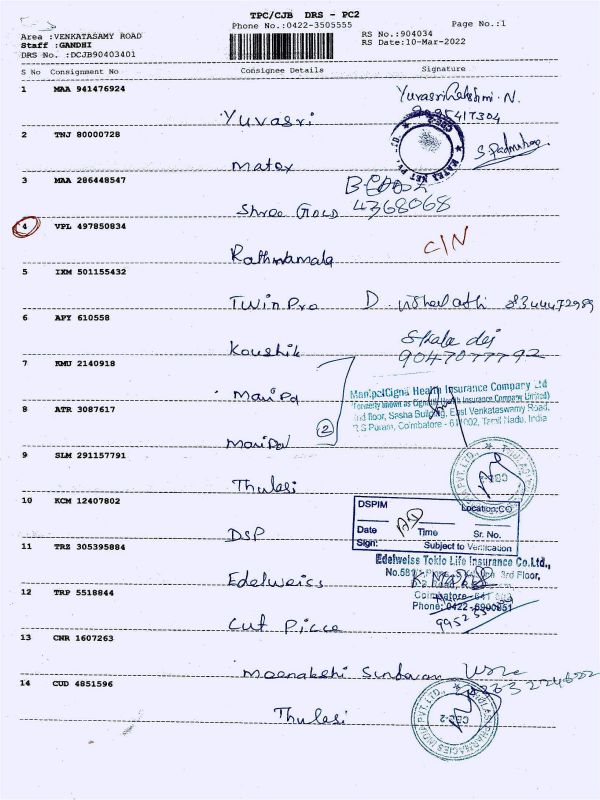 TPC/CJB DRS - PC2
Phone No.:0422-3505555
Page No.:1
Area :VENKATASAMY ROAD
Staff :GANDHI
DRS No. :DCJB90403401
RS No.:904034
RS Date:10-Mar-2022
S No Consignment No Consignee Details Signature
1 MAA 941476924
Yuvasri
2 TNJ 80000728
Matex
S. Padmuhar
3 MAA 286448547
Shree Gold
4368068
4 VPL 497850834
C/N
Rathnamala
5 IXM 501155432
Twin Pro
6 APY 610558
Koushik
9047077792
7 KMU 2140918
Maripa
ManipalCigna Health Insurance Company Ltd
(formerly known as CignaTTK Health Insurance Company Limited)
2nd floor, Sasha Building, East Venkataswamy Road,
R.S Puram, Coimbatore - 641002, Tamil Nadu, India
8 ATR 3087617
2
Maripal
9 SLM 291157791
Thulasi
10 KCM 12407802
DSPIM Location:CO
Date Time Sr. No.
Sign: Subject to Verification
DSP
11 TRZ 305395884
Edelweiss Tokio Life Insurance Co.Ltd.,
3rd Floor,
Edelweiss
12 TRP 5518844
Coimbatore
Phone: 0422-6900851
Cut Picce
13 CNR 1607263
Meenakshi Sundaram
14 CUD 4851596
Thulasi
CBC-2